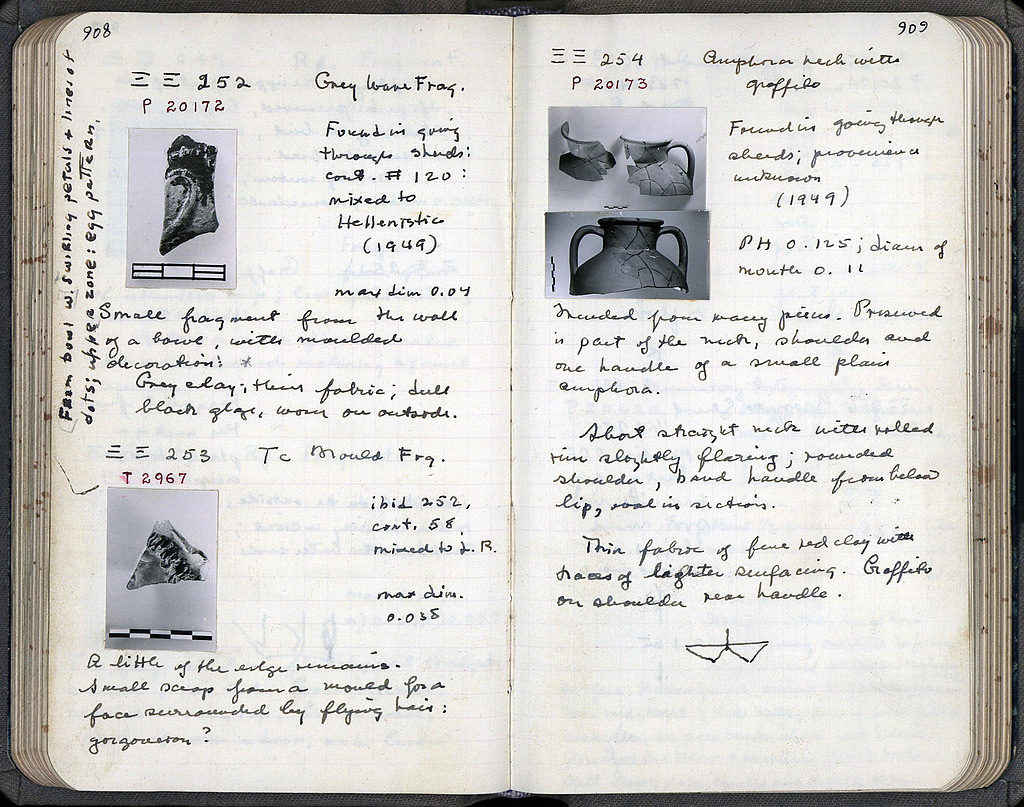 908
Ξ Ξ 252 Grey Ware Frag.
P 20172
Found in going
through sherds:
cont. # 120:
mixed to
Hellenistic
(1949)
max dim 0.07
Small fragment from the wall
of a bowl, with moulded
decoration: *
Grey clay; thin fabric; dull
black glaze, worn on outside.
From bowl w. swirling petals + lines of
dots; upper zone: egg pattern.
Ξ Ξ 253 Tc Mould Frg.
T 2967
ibid 252,
cont. 58,
mixed to L. R.
max dim.
0.038
A little of the edge remains.
Small scrap from a mould for a
face surrounded by flying hair:
gorgoneion?
909
Ξ Ξ 254 Amphora neck with
graffito
P 20173
Found in going through
sherds; provenience
unknown
(1949)
PH 0.125; diam of
mouth 0.11
Mended from many pieces. Preserved
is part of the neck, shoulder and
one handle of a small plain
amphora.
Short straight neck with rolled
rim slightly flaring; rounded
shoulder; band handle from below
lip, oval in section.
Thin fabric of fine red clay with
traces of lighter surfacing. Graffito
on shoulder near handle.